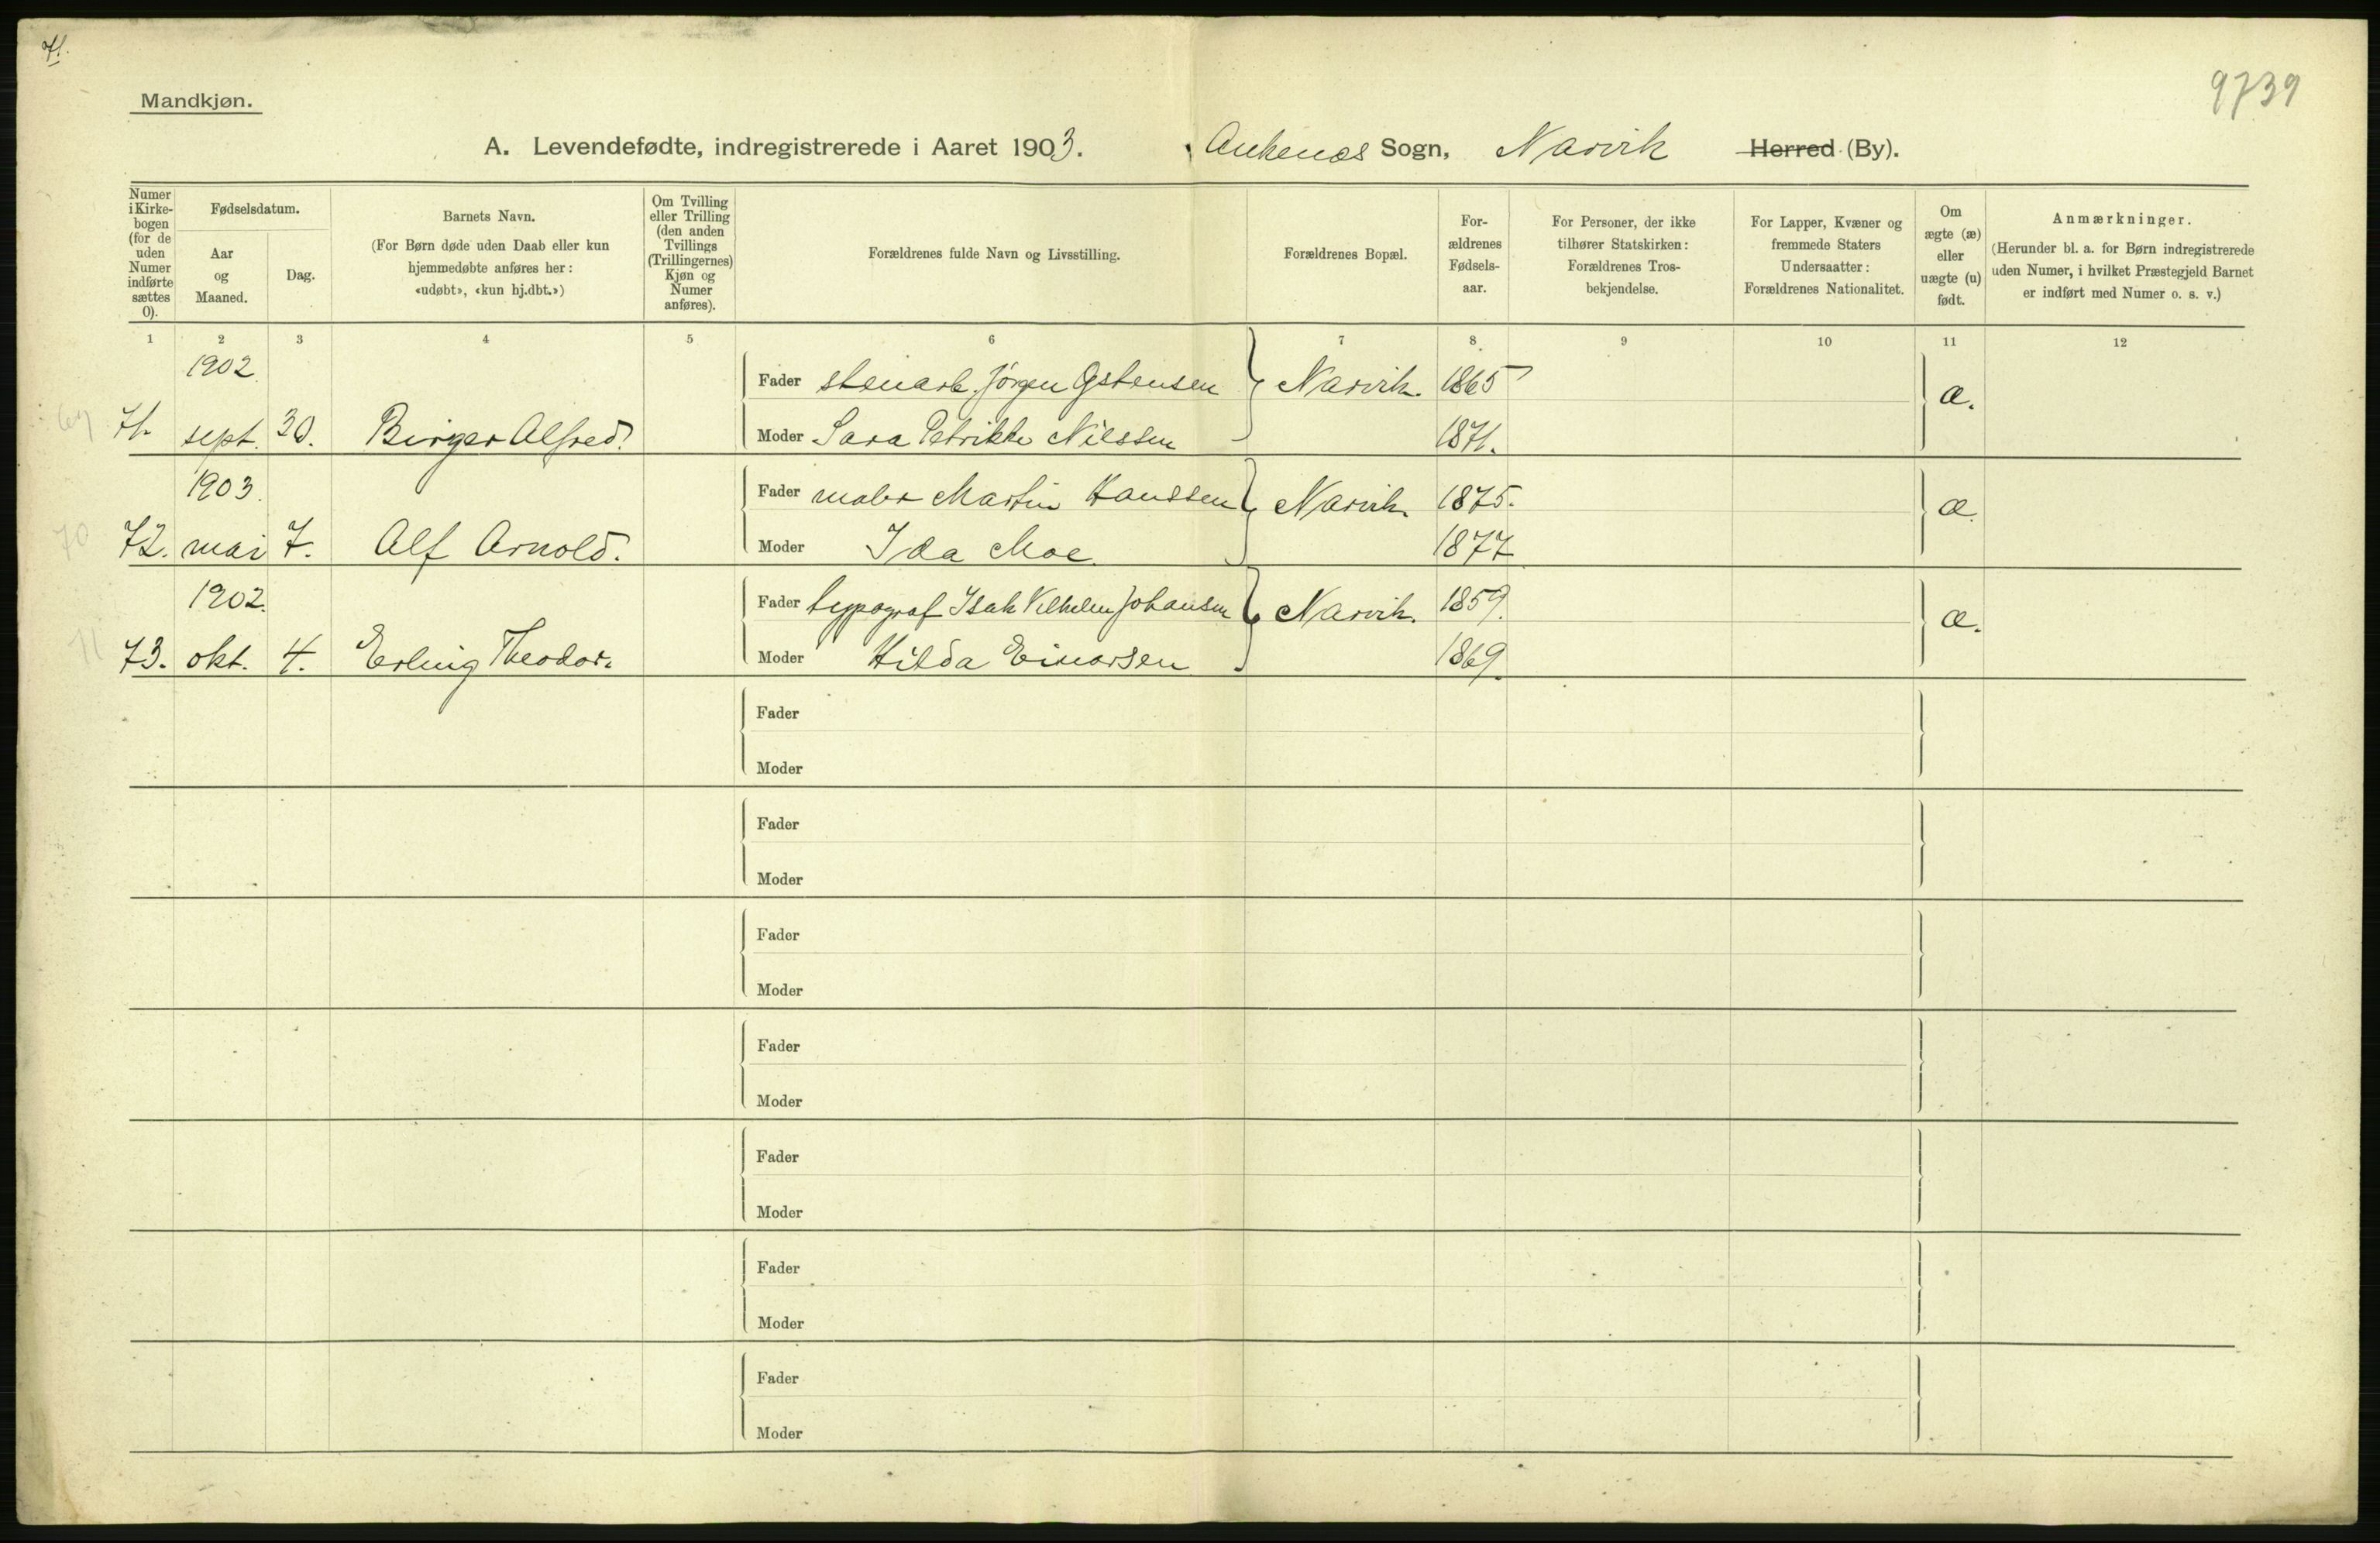 71.
9739
Mandkjøn.
A. Levendefødte, indregistrerede i Aaret 1903. Ankenæs Sogn, Narvik Herred (By).
Numer i Kirkebogen (for de uden Numer indførte sættes 0).
Fødselsdatum.
Aar og Maaned.
Dag.
Barnets Navn.
(For Børn døde uden Daab eller kun hjemmedøbte anføres her: «udøbt», «kun hj.dbt.»)
Om Tvilling eller Trilling (den anden Tvillings (Trillingernes) Kjøn og Numer anføres).
Forældrenes fulde Navn og Livsstilling.
Forældrenes Bopæl.
Forældrenes Fødselsaar.
For Personer, der ikke tilhører Statskirken: Forældrenes Trosbekjendelse.
For Lapper, Kvæner og fremmede Staters Undersaatter: Forældrenes Nationalitet.
Om ægte (æ) eller uægte (u) født.
Anmærkninger.
(Herunder bl. a. for Børn indregistrerede uden Numer, i hvilket Præstegjeld Barnet er indført med Numer o. s. v.)
1 2 3 4 5 6 7 8 9 10 11 12
1902 Fader stenarb. Jörgen Östensen Narvik. 1865 æ.
69 71. sept. 30. Birger Alfred. Moder Sara Petrikke Nilssen 1871.
1903. Fader maler Martin Hanssen Narvik. 1875. æ.
70 72. mai 7. Alf Arnold. Moder Ida Moe 1877
1902. Fader typograf Isak Vilhelm Johansen Narvik. 1859. æ.
71 73. okt. 4. Erling Theodor. Moder Hilda Einarsen 1869.
Fader
Moder
Fader
Moder
Fader
Moder
Fader
Moder
Fader
Moder
Fader
Moder
Fader
Moder